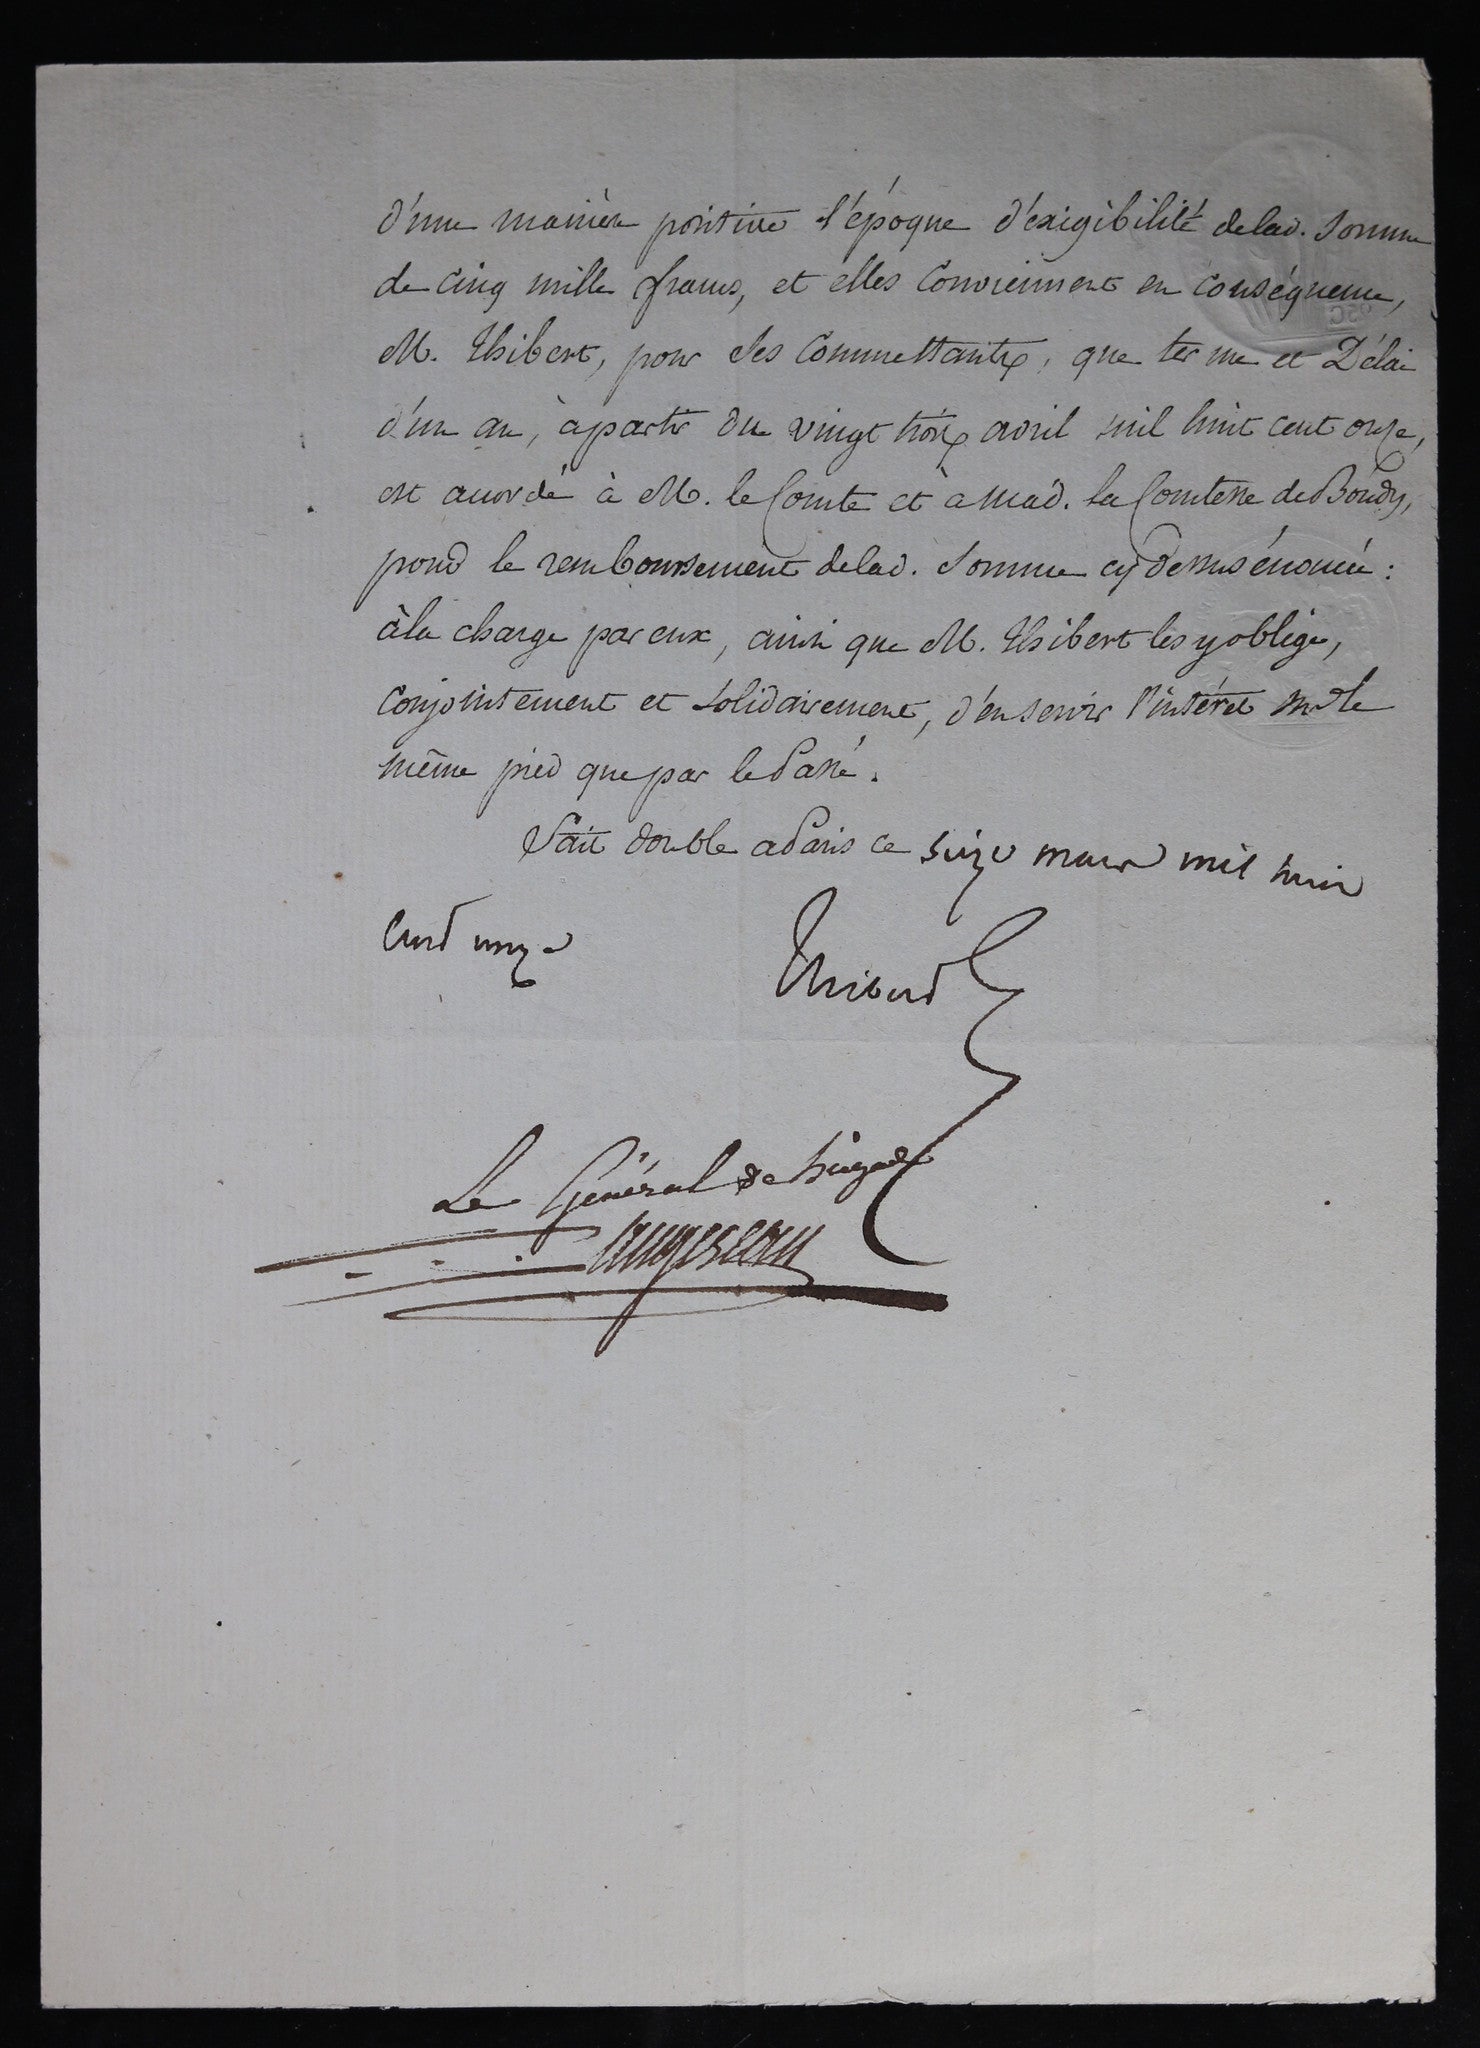 d'une manière positive l'époque d'éxigibilité delad. Somme
de Cinq mille francs, et elles Conviennent en Conséquence,
M. Thibert, pour ses Commettants, que terme et Délai
d'un an, àpartir du vingt trois avril mil huit cent onze,
est accordé à M. le Comte et à Mad. la Comtesse de Bondy,
pour le remboursement delad. Somme cy dessus énoncée :
àla charge par eux, ainsi que M. Thibert les y oblige,
Conjointement et Solidairement, d'en servir l'intéret sur le
même pied que par le Passé.
Fait double a Paris ce Seize mars mil huit
Cent onze
Thibert
Le Général de brigade